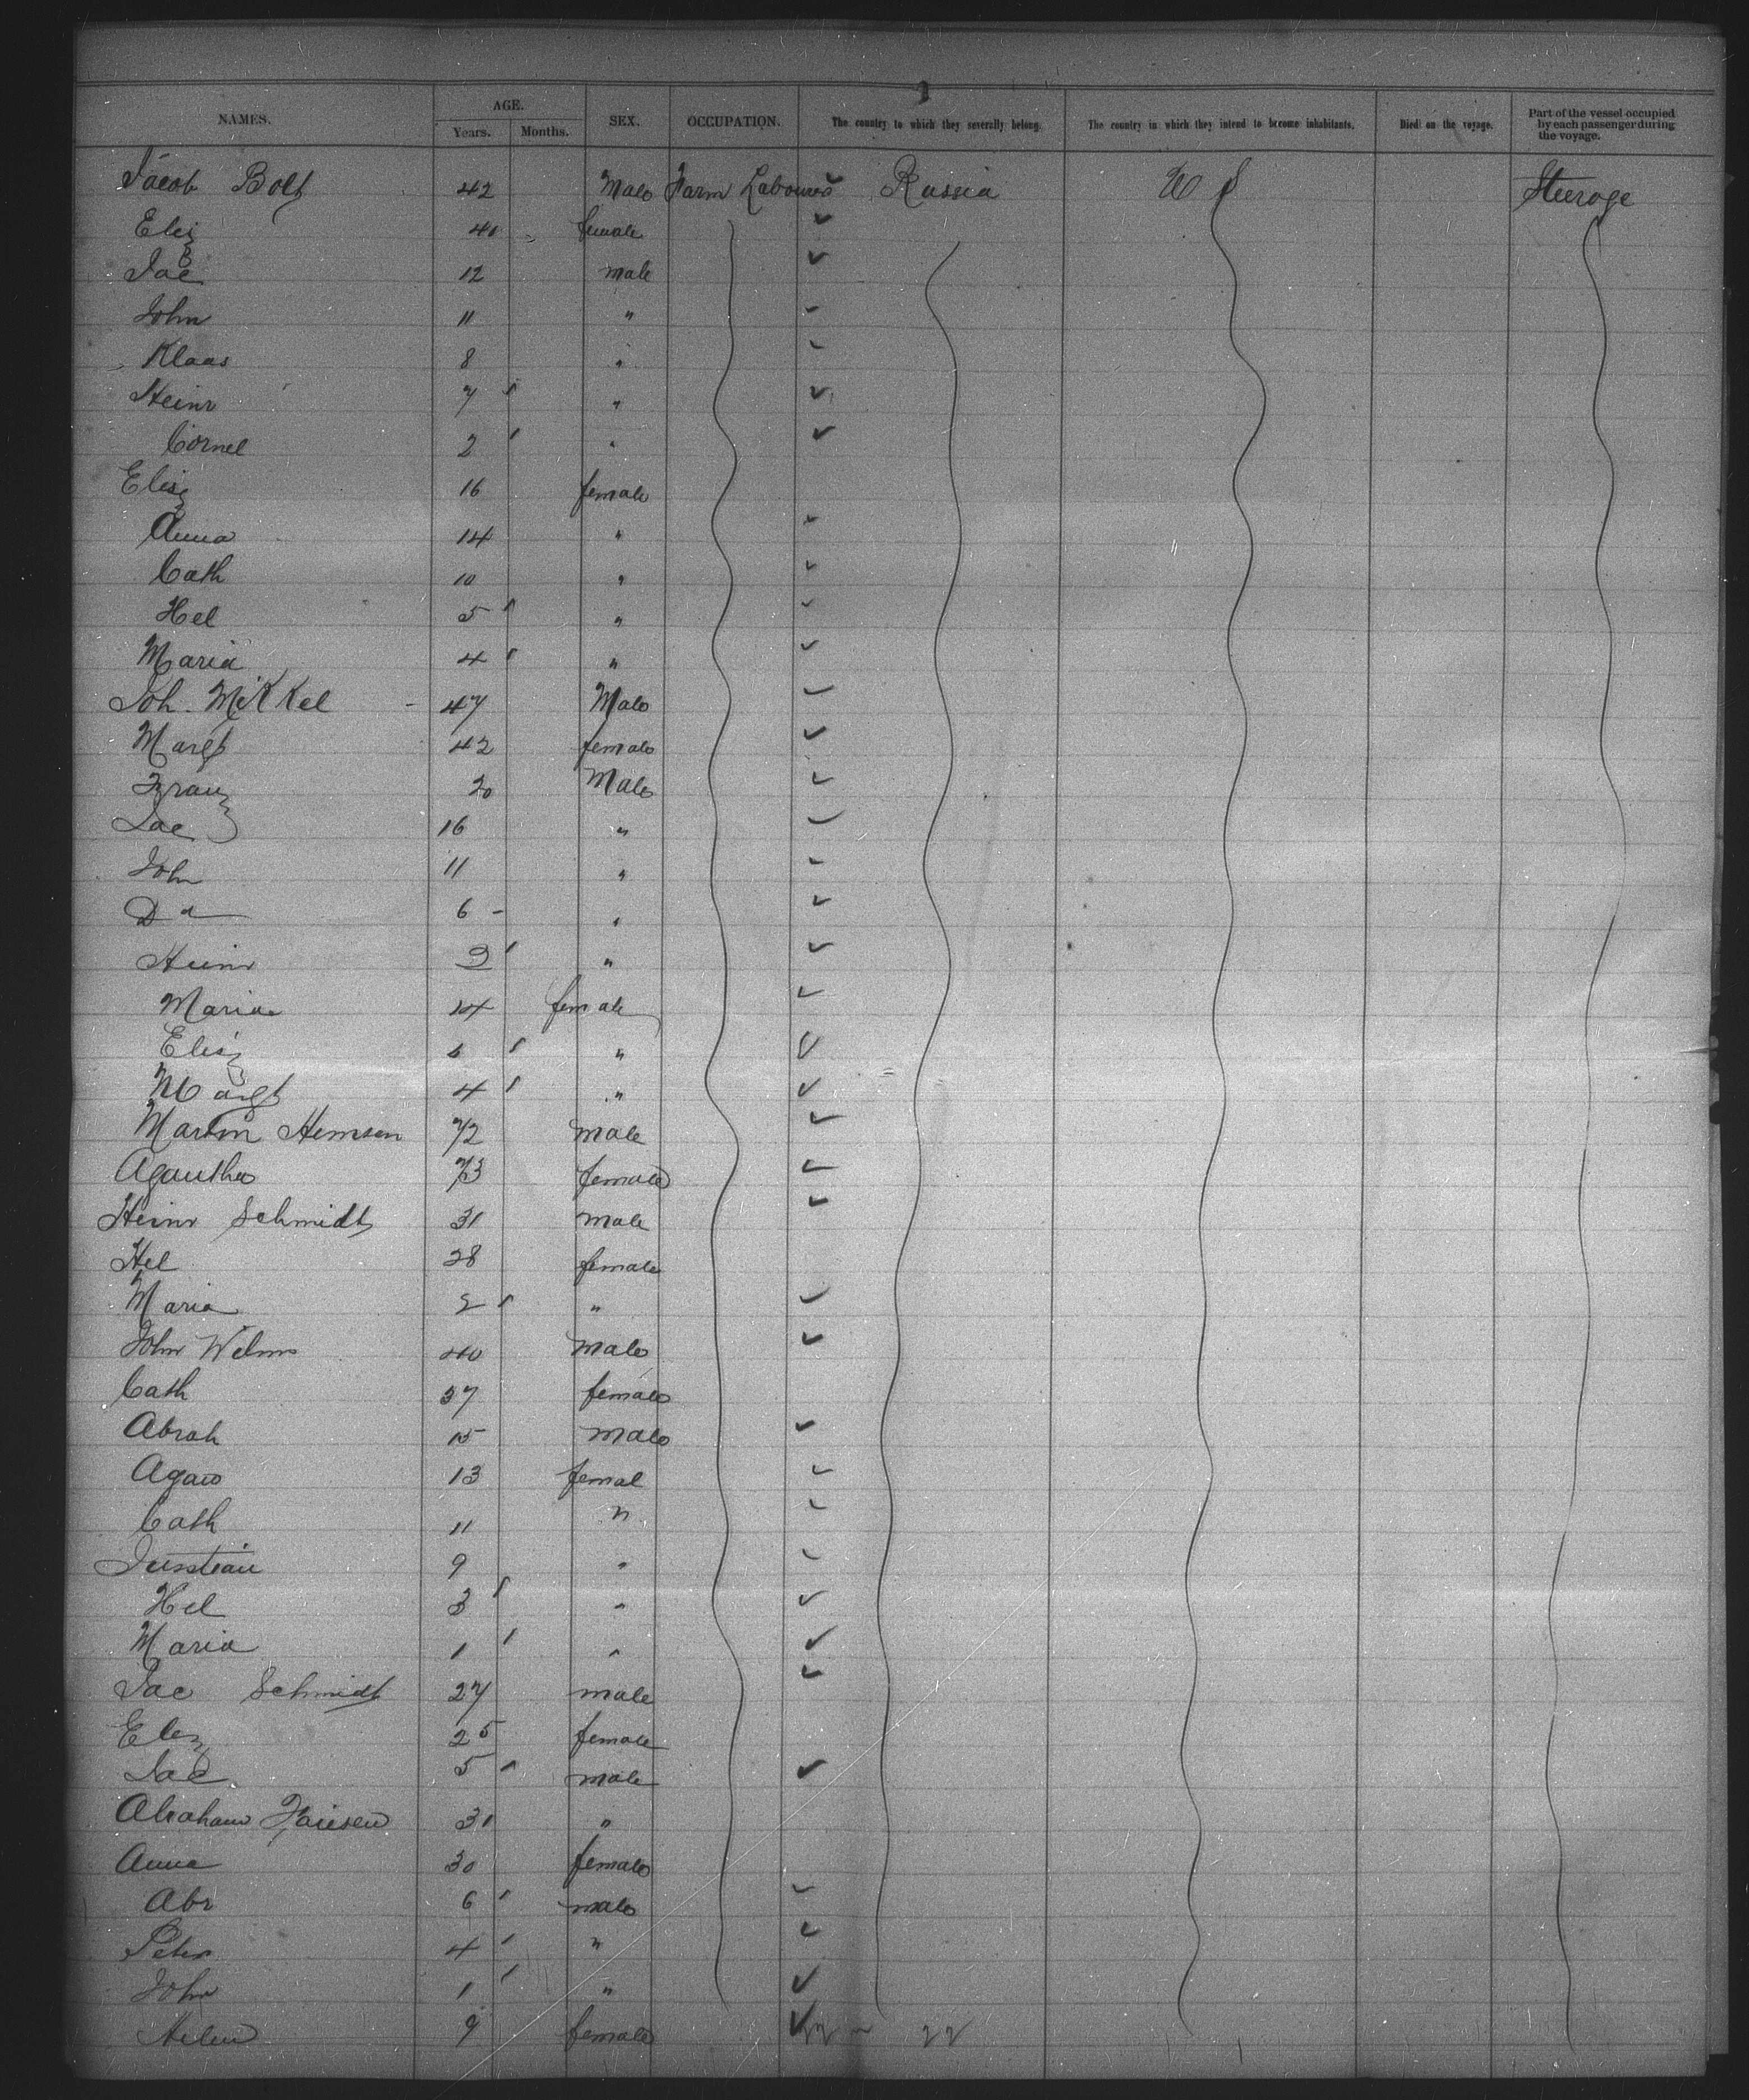 NAMES. AGE. Years. Months. SEX. OCCUPATION. The country to which they severally belong. The country in which they intend to become inhabitants. Died on the voyage. Part of the vessel occupied by each passenger during the voyage.
Jacob Bolt 42 Male Farm Labourer Russia U S Steerage
Elis 40 female
Jac 12 male
John 11 "
Klaas 8 "
Heinr 7 "
Cornel 2 "
Elisz 16 female
Anna 14 "
Cath 10 "
Hel 5 "
Maria 4 "
Joh. Mikkel 47 Male
Margt 42 female
Franz 20 Male
Jac 16 "
John 11 "
Dd 6 "
Heinr "
Maria 14 female
Elisz 6 "
Margt 4 "
Martin Hemsen 72 male
Agantha 73 female
Heinr Schmidt 31 male
Hel 28 female
Maria 2 "
John Welms 40 male
Cath 37 female
Abrah 15 male
Agan 13 femal
Cath 11 "
9 "
Hel 3 "
Maria 1 "
Jac Schmidt 27 male
Elez 25 female
Jac 5 male
Abraham 31 "
Anna 30 female
Abr 6 male
Peter 4 "
John 1 "
Helen 9 female 22 22